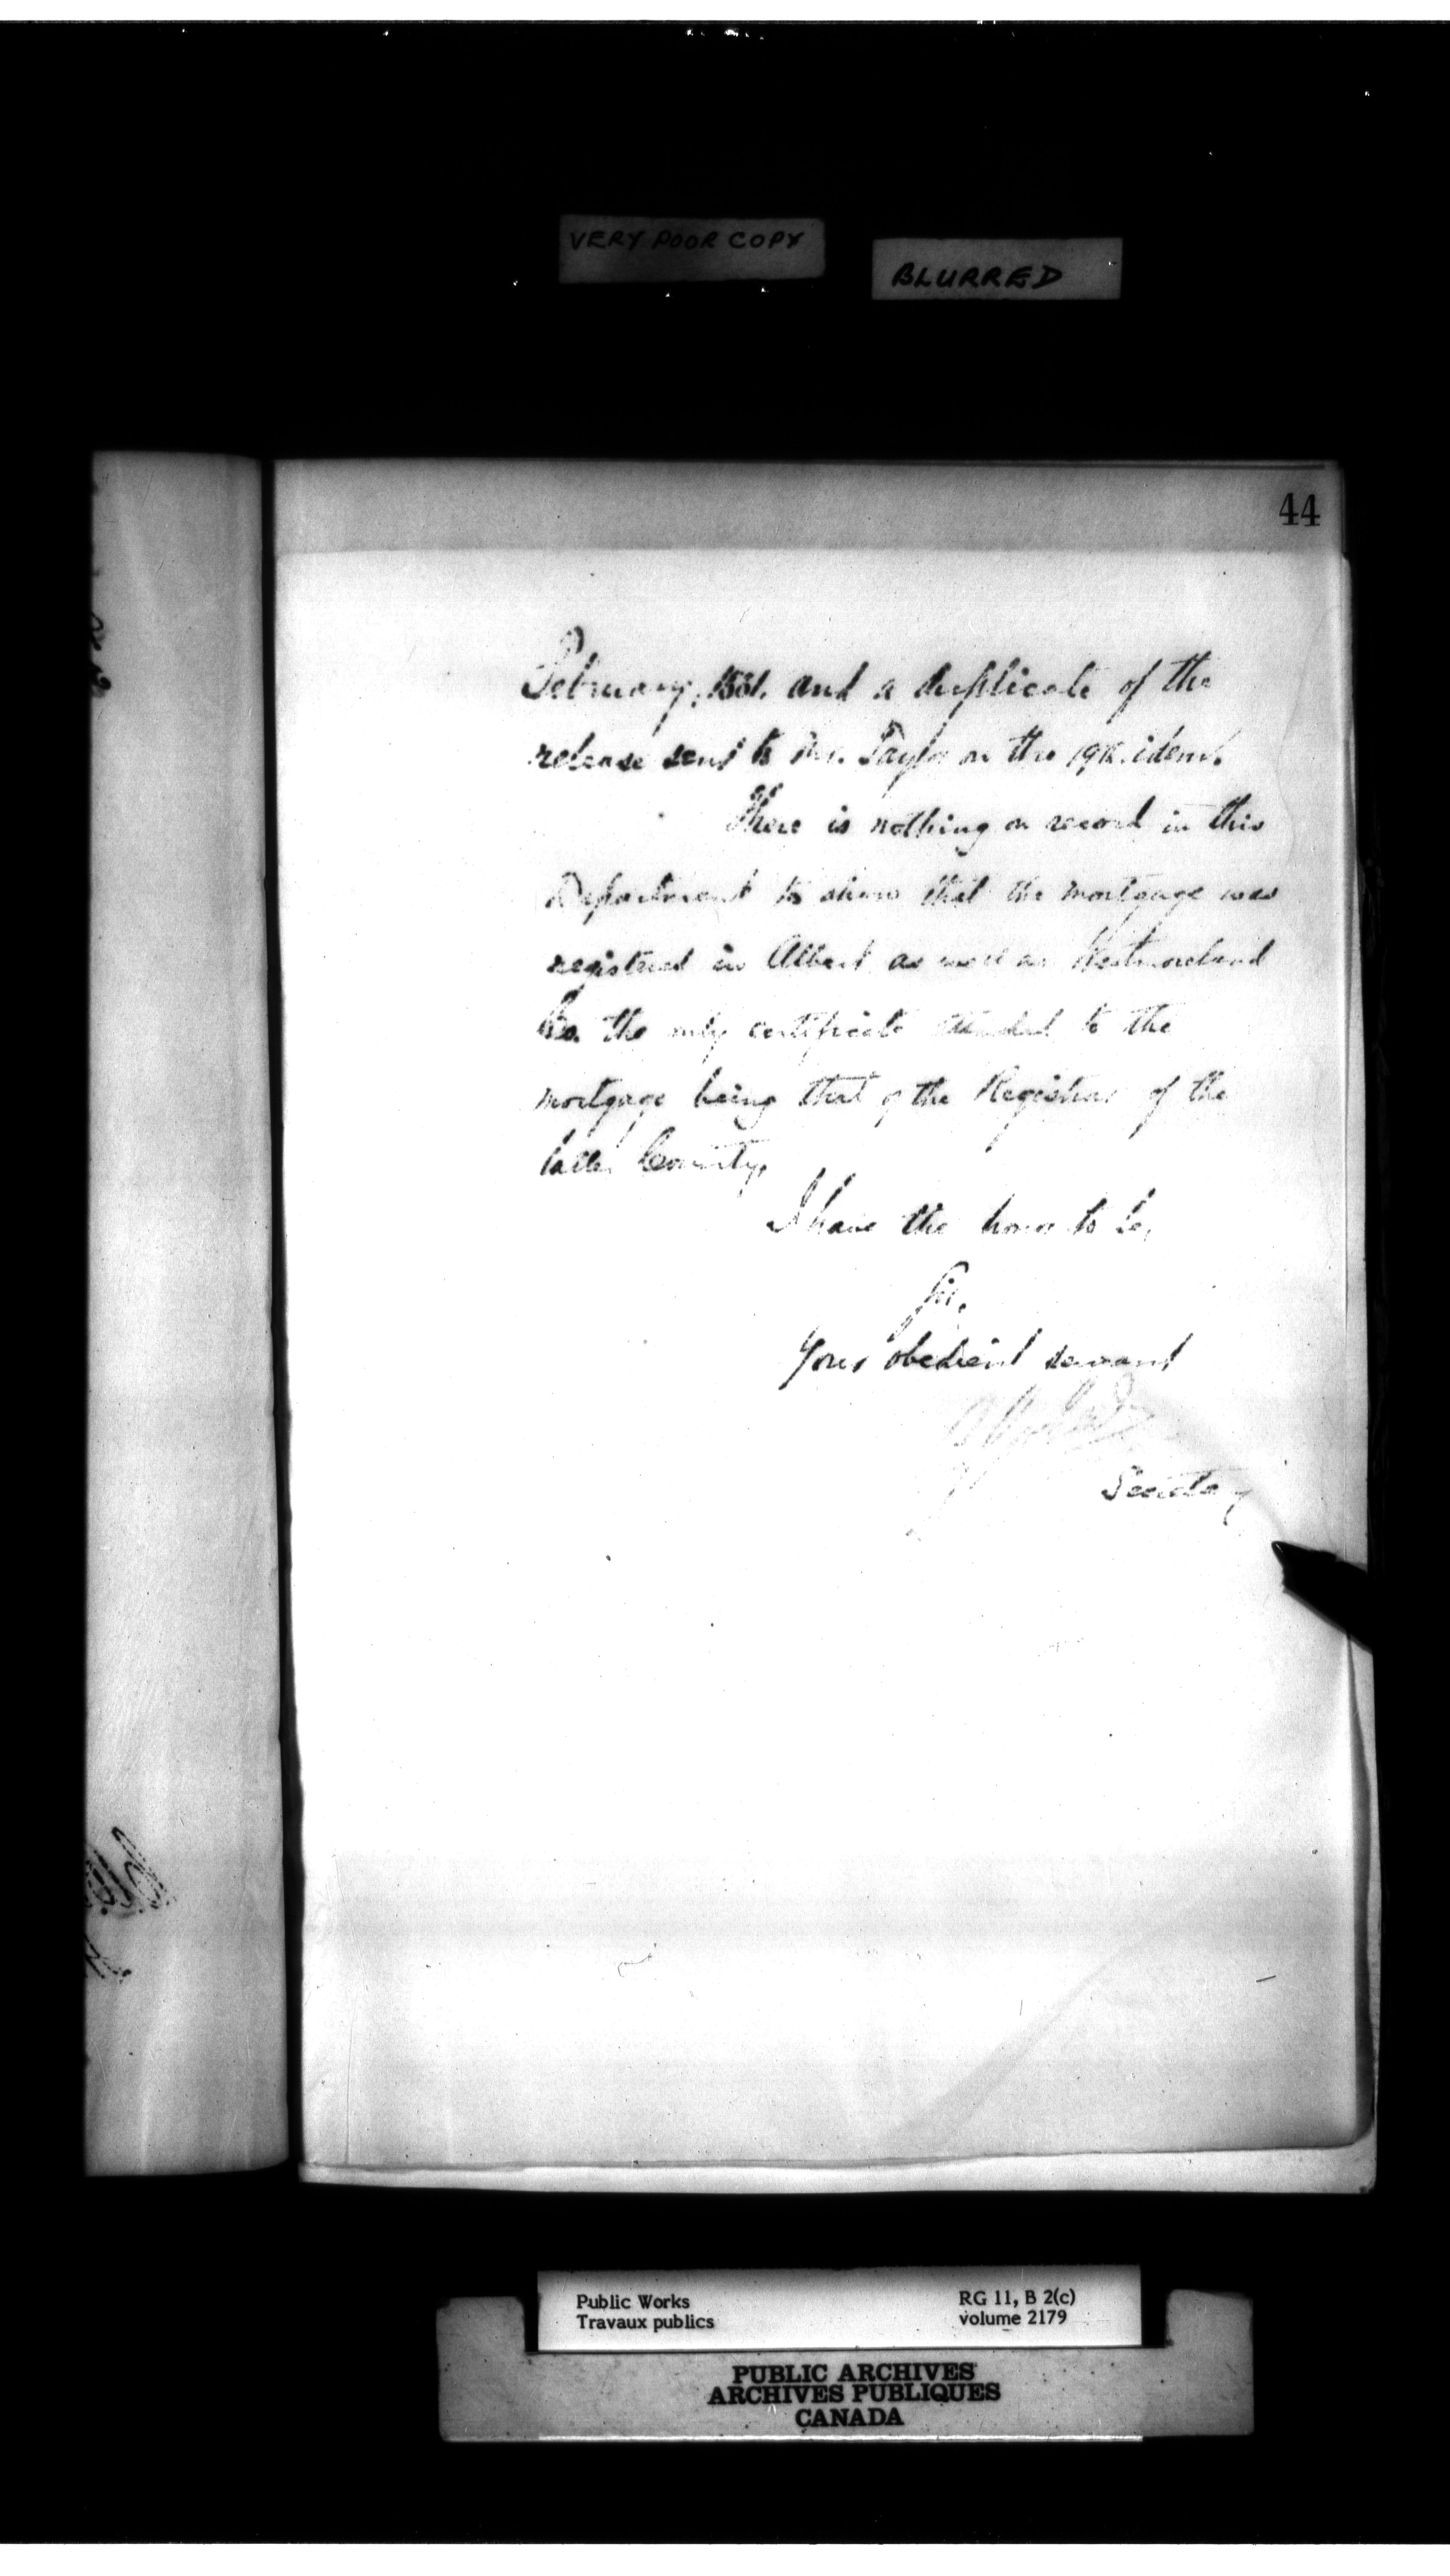 VERY POOR COPY
BLURRED
44
February, 1881. and a duplicate of the
release sent to Mr. Taylor on the 19th. idem.
There is nothing on record in this
Department to show that the mortgage was
registered in Albert as well as Westmoreland
Co. the only certificate attached to the
mortgage being that of the Registrar of the
latter County,
I have the honor to be,
Sir,
Your obedient servant
Secretary
Public Works
Travaux publics
RG 11, B 2(c)
volume 2179
PUBLIC ARCHIVES
ARCHIVES PUBLIQUES
CANADA